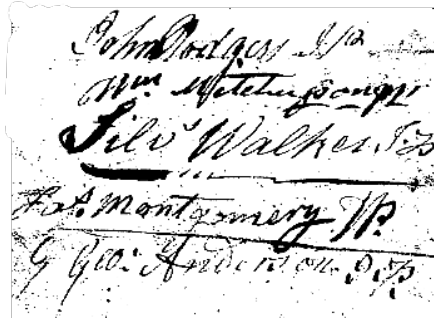 John Rodgers J P
Wm Mitchell
Silvs Walker. J P
Montgomery JP.
Geo: Anderson. J. P.